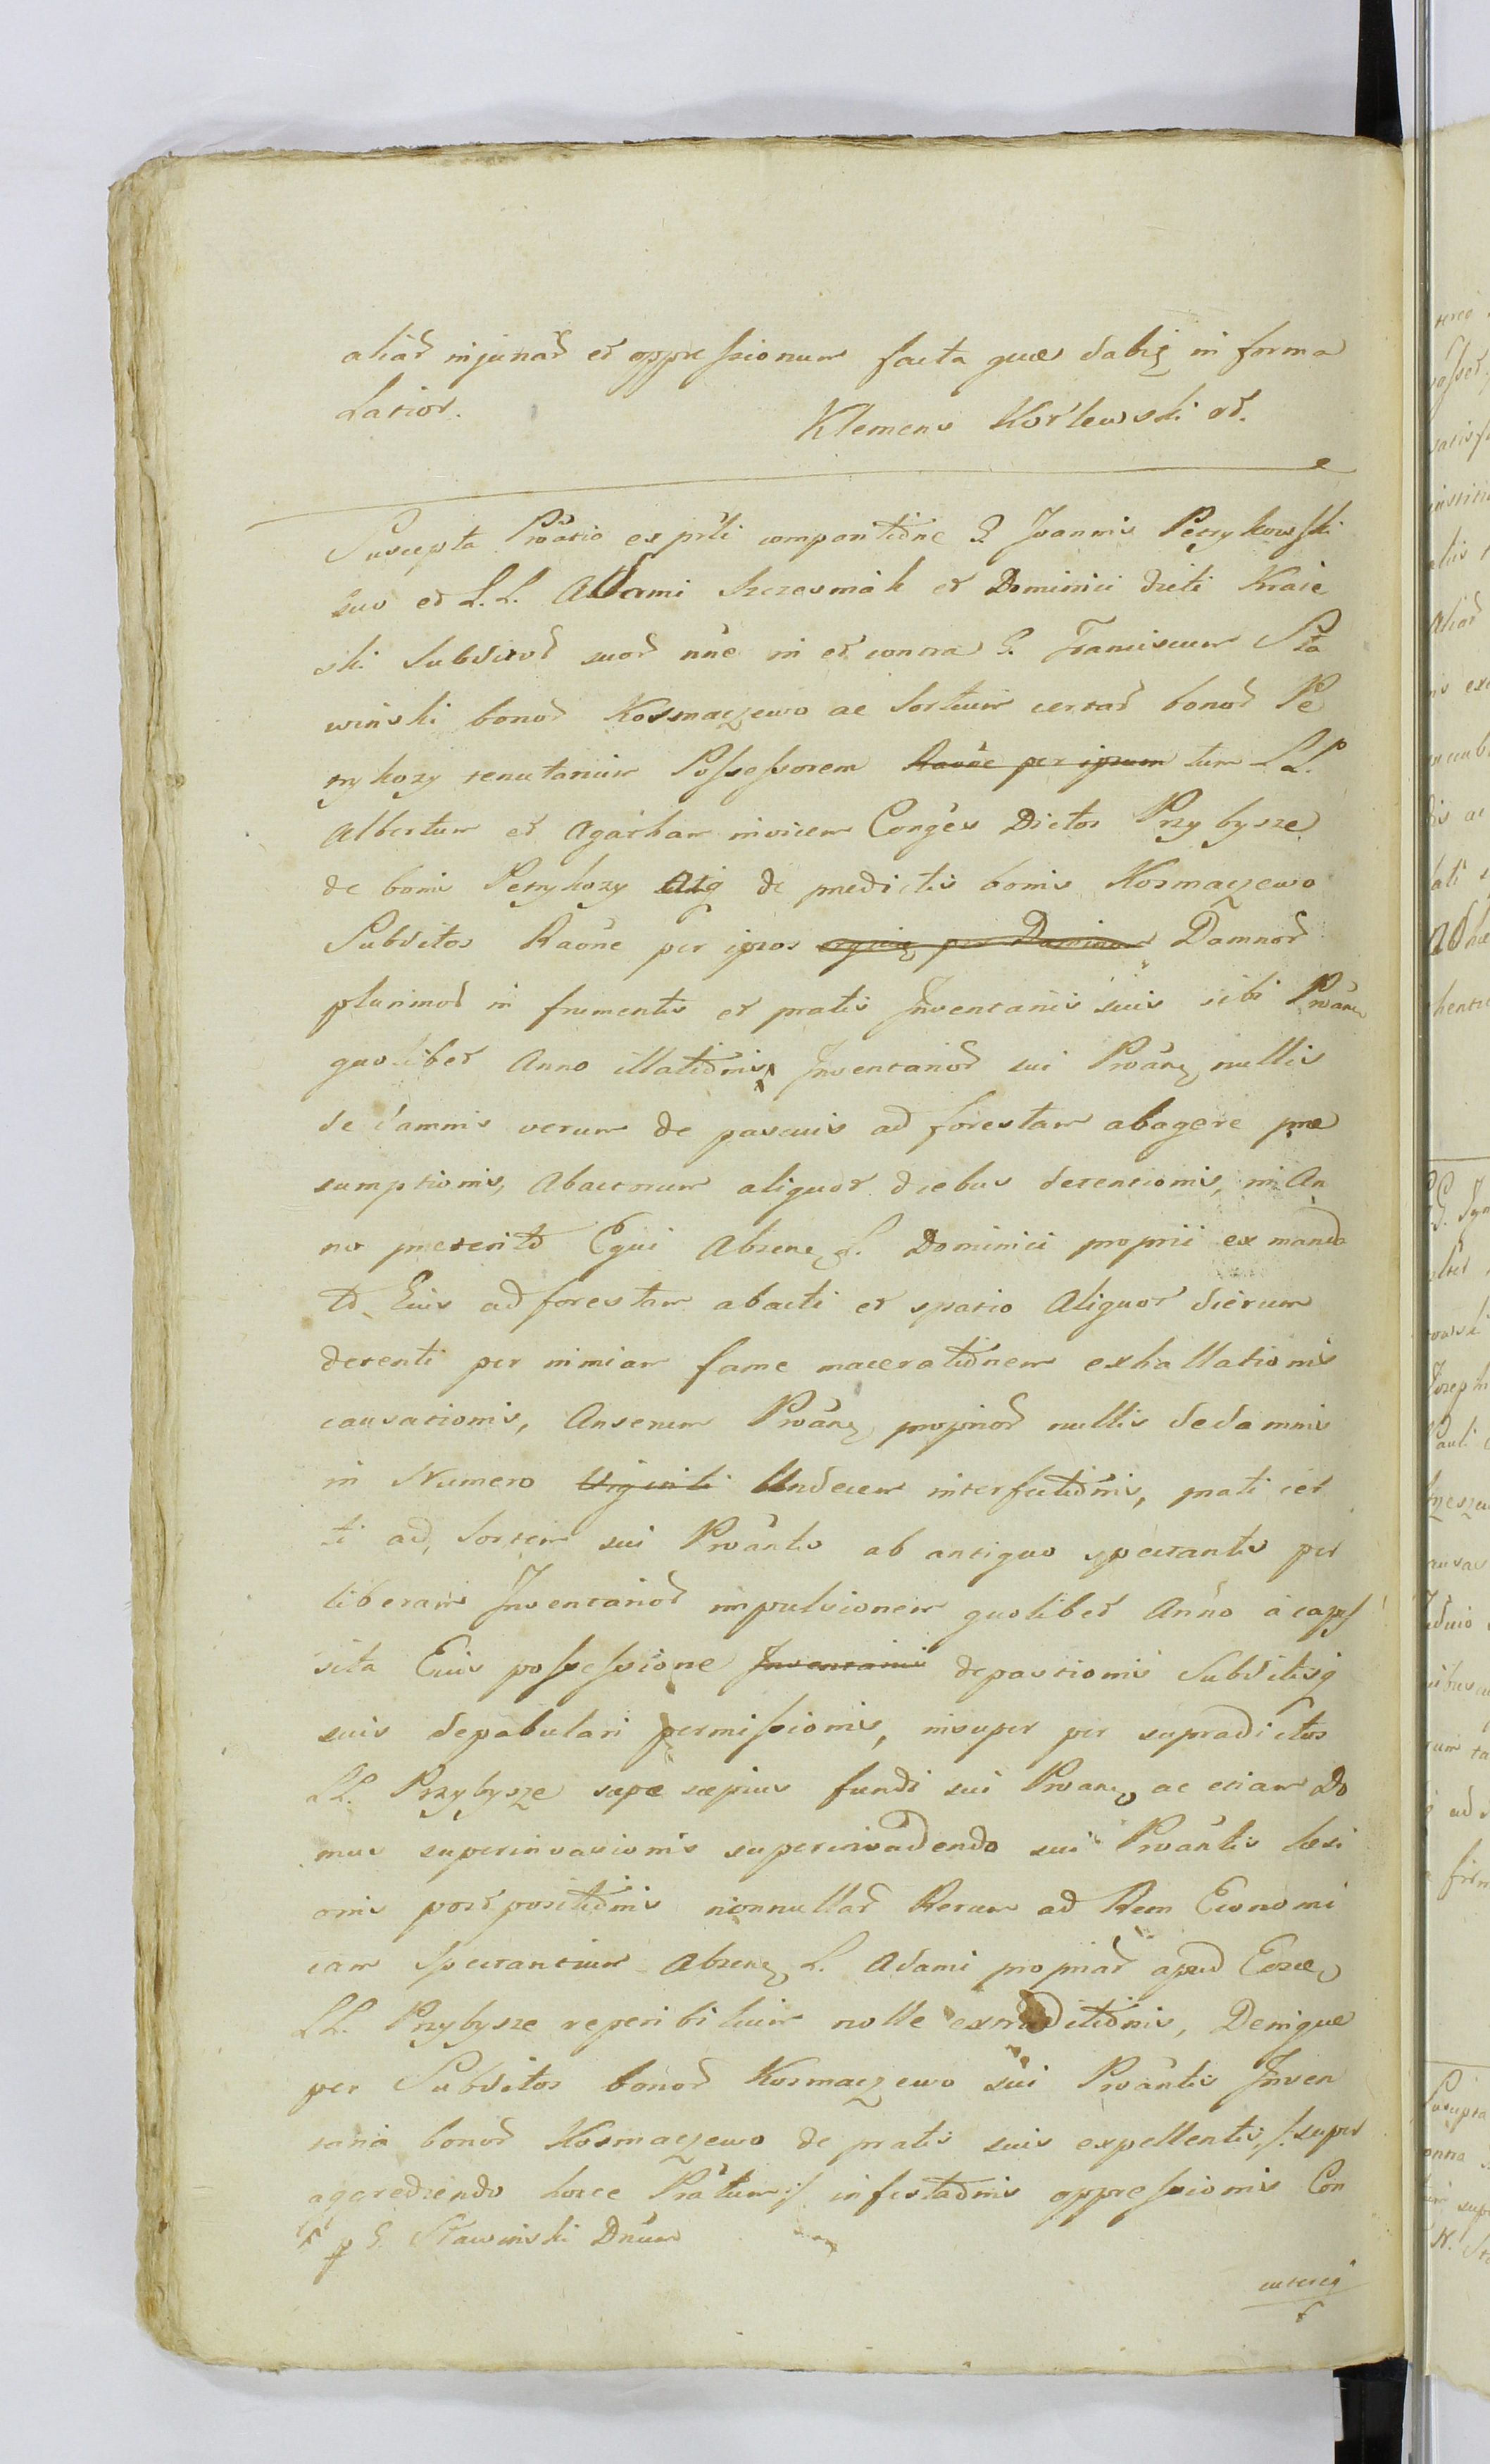 aliar̃ injuriar̃ et oppressionum facta quæ dabiȩ in forma
Latior.
Klemens Kozlewski dr̃.
Suscepta Prõtatio ex prl̃i comparitiõne G. Joannis Petrykowski
suo et L.L. Adami Szczesniak et Dominici dicti Kraie
ski Subditor̃ suor̃ nñe in et contra G. Franciscum Sła
wiński bonor̃ Kosmaczewo ac Sortium certar̃ bonor̃ Pe
trykozy tenutarium Possessorem Raõne per ipsum tum LL.
Albertum et Agatham invicem Conges Dictos Przybysze
de bonis Petrykozy atq de prædictis bonis Kosmaczewo
Subditos Raõne per ipsos Damnor̃
plurimor̃ in frumentis et pratis Inventariis suis sibi Prõan
quolibet Anno illatiõnis, Inventarior̃ sui Prõanȩ nullis
de damnis verum de pascuis ad forestam abagere præ
sumptionis, abactorum aliquot diebus detentionis, in An
no præterito Equi Absenȩ L. Dominici proprii ex manda
to Ejus ad forestam abacti et spatio Aliquot dierum
detenti per nimiam fame maceratiõnem exhallationis
causationis, Anserum Prõanȩ proprior̃ nullis de damnis
in Numero Viginti Undecem interfectiõnis, prati cer
ti ad Sortem sui Prõantis ab antiquo spectantis per
liberam Inventarior̃ impulsionem quolibet Anno a cap
sita Ejus possessione Inventariis depastionis Subditisq
suis depabulari permissionis, insuper per supradictos
LL. Przybysze sæpe sæpius fundi sui Prõanȩ ac etiam Do
mus superinvasionis superinvadendo sui Prõantis læsi
onis postpositiõnis nonnullar̃ Rerum ad Rem Economi
cam Spectantium Absenȩ L. Adami propriar̃ apud Eosd
LL. Przybysze reperibilium nolle extraditiõnis, Denique
per Subditos bonor̃ Kosmaczewo sui Prõantis Inven
taria bonor̃ Kosmaczewo de pratis suis expellentis /: super
aggrediendo hocce Prãtum :/ infestatiõnis oppressionis Con
G. Sławinski Dnũm
cutereq